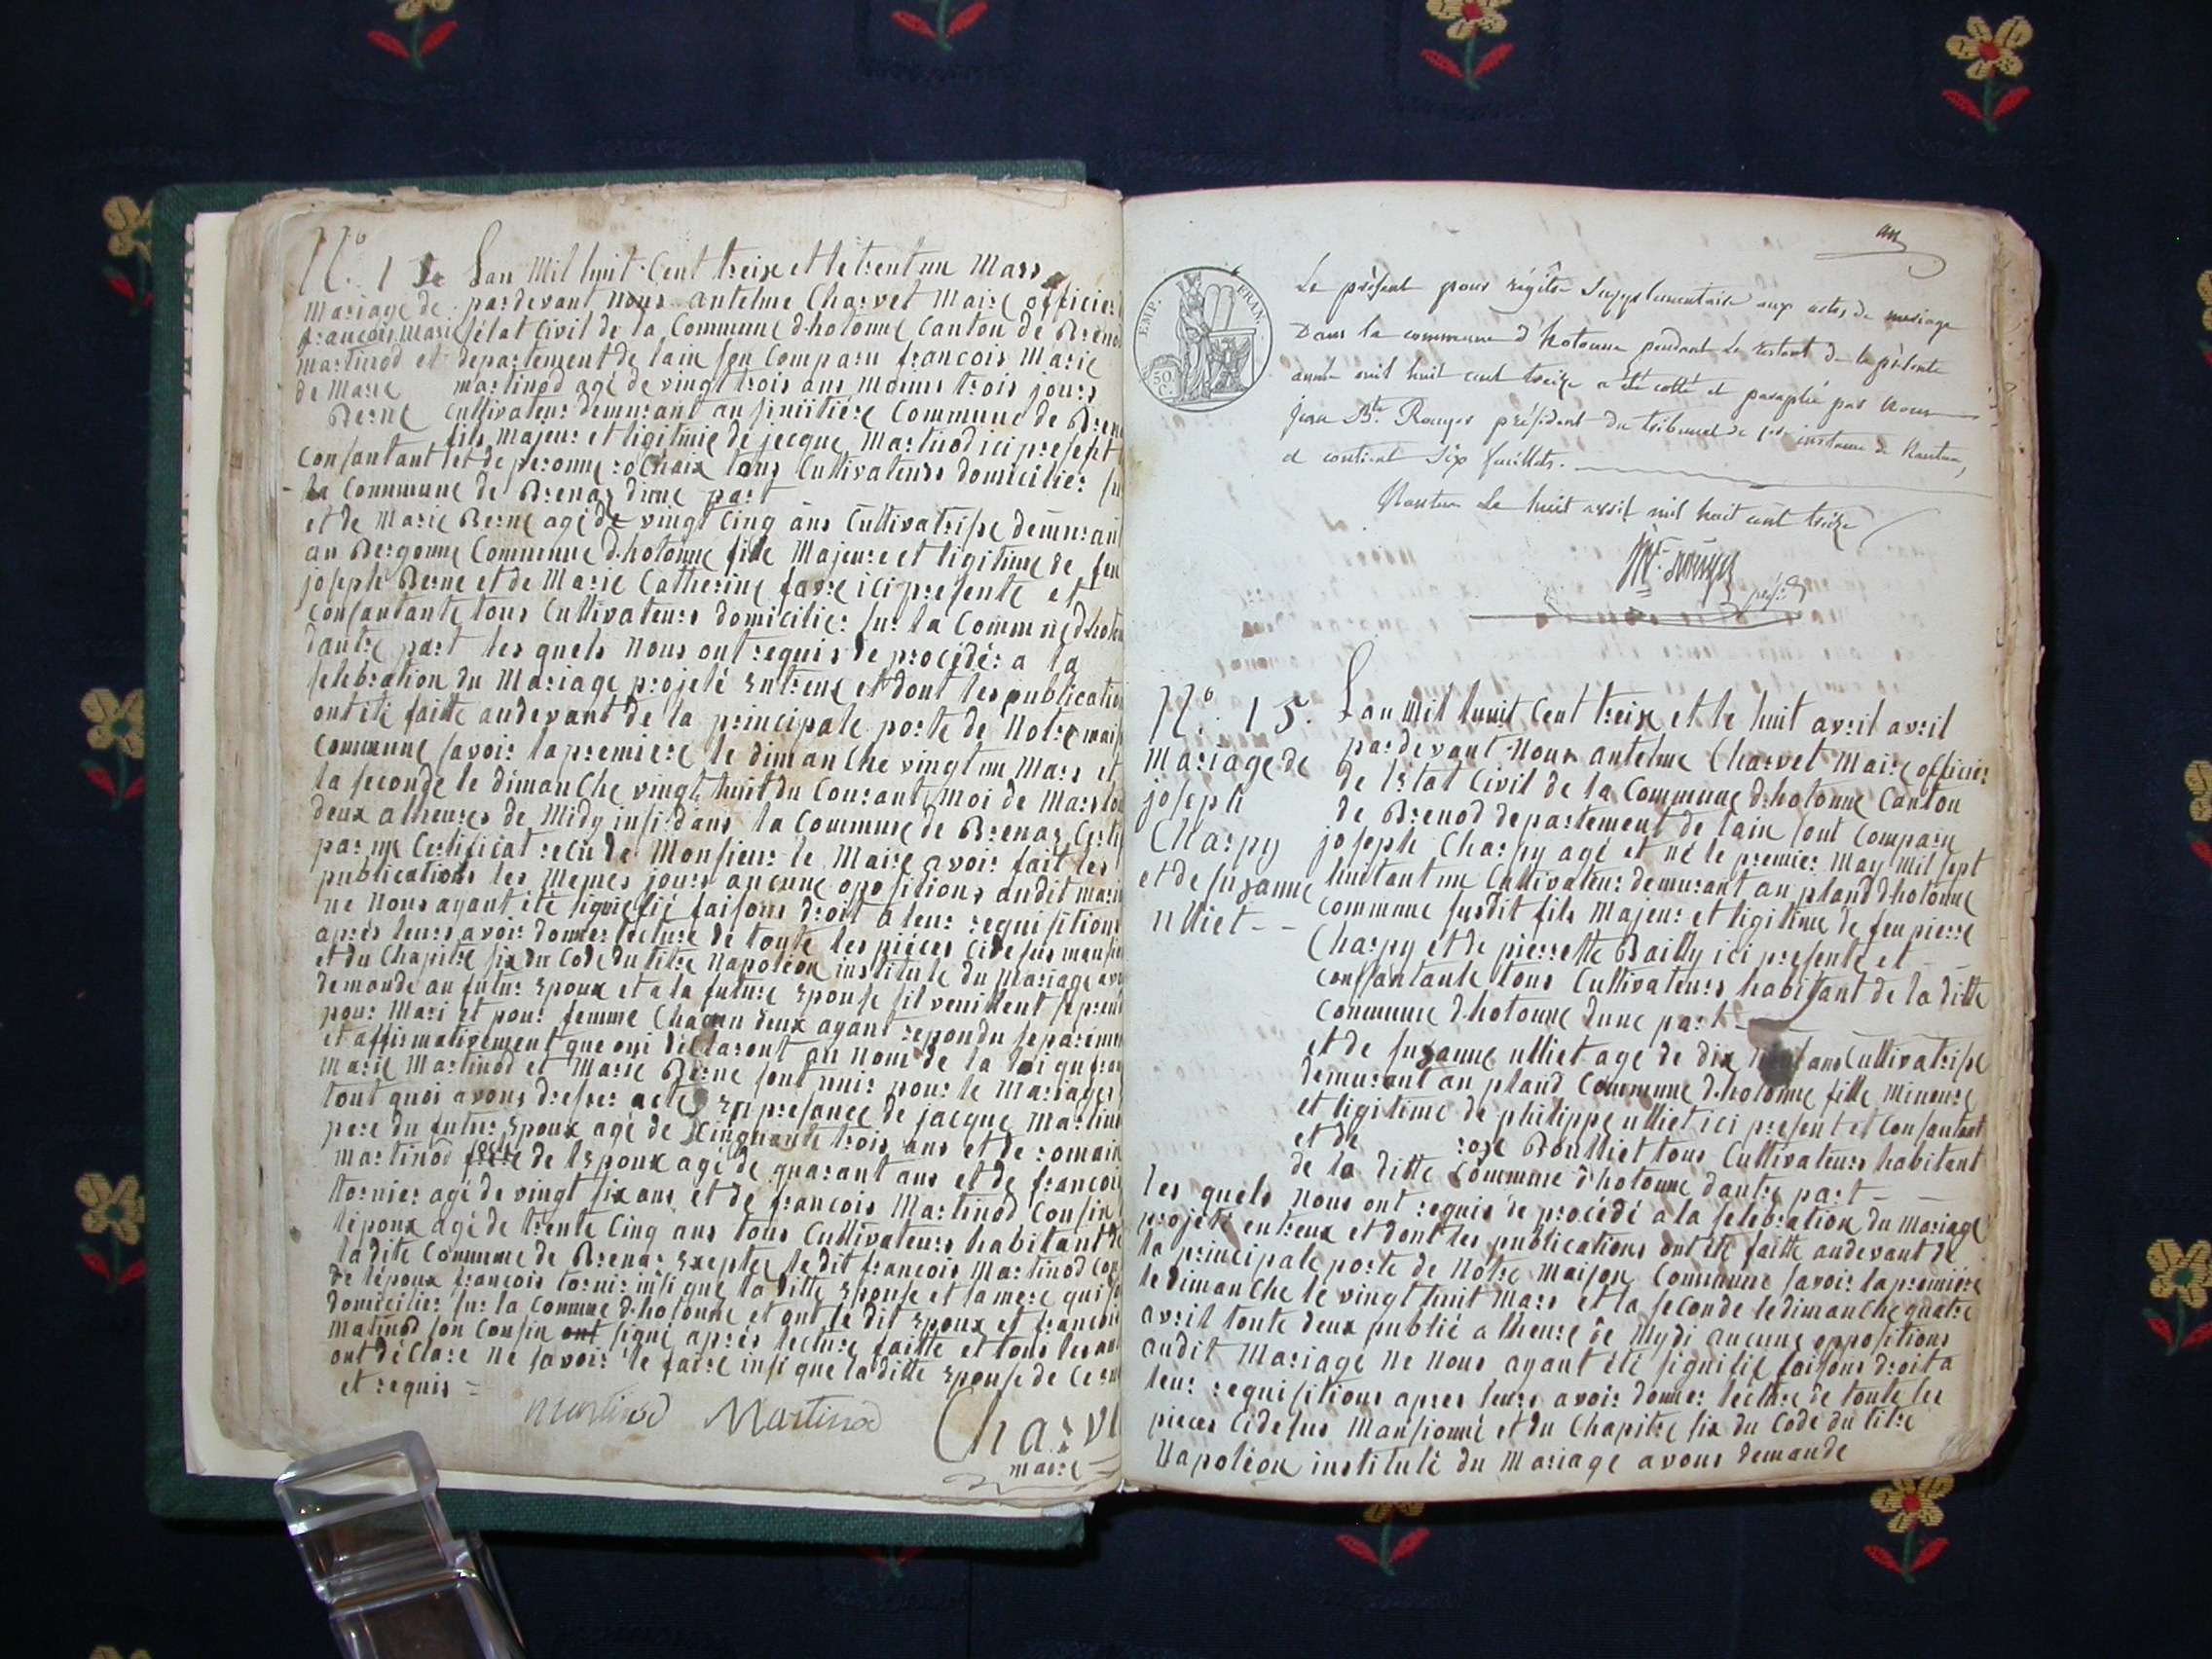 N.º 1
Lan Mil huit Cent treize et le trent un Mars
Mariage de
francois. Marie
martinod et
de Marie
Berne
pardevant nous antelme Charvet Maire officier
létat Civil de la Commune d.hotonne Canton de Breno
departement de lain son Comparu francois Marie
martinod agé de vingt trois ans moins trois jours
Cultivateur demurant au Commune de Bren
fils majeur et ligitimie de jecque Martinod ici present
consantant et de peronne rochaix tous Cultivateurs domicilier su
la Commune de Brenaz dune part
et de Marie Berne agé de vingt Cinq ans Cultivatrisse demurant
au Bergonne Commune d.hotonne fille Majeure et ligitime de feu
joseph Berne et de Marie Catherine favre ici presente et
consantante tous Cultivateurs domicilier sur la Commune d.hoton
dautre part les quels nous ont requis de procédér a la
selebration du Mariage projeté entreux et dont les publication
ont été faitte au devant de la principale porte de Notre mais
Commune savoir la premiere le dimanche vingt un Mars et
la seconde le dimanche vingt huit du Courant Moi de Mars tou
deux a lheures de Midy insi dans la Commune de Brenaz Certif
par un Certificat recu de Monsieur le Maire avoir fait les
publications les Memes jours aucune opositions audit mari
ne nous ayant été signiefié faisons droit a leur requisitions
après leurs avoir donner lecture de toute les pièces Cidesus mansi
et du Chapitre six du Code du titre Napoléon institulé du Mariage avo
demandé au futur Epoux et a la future Epouse sil veuillent se prend
pour Mari et pour femme Chacun deux ayant repondu separemen
et affirmativement que oui déclaront au nom de la loi que fran
Marie Martinod et Marie Berne sont unis pour le Mariage
tout quoi avons dresser acte En presance de jacque Martino
pere du futur Epoux agé de Cinquante trois ans et de romain
martinod frere de lEpoux agé de quarant ans et de francoi
tornier agé de vingt six ans et de francois Martinod Cousin
lépoux agé de trente Cinq ans tous Cultivateurs habitant de
ladite Commune de Brenaz Exepter le dit francois Martinod Cou
de lépoux francois tornir insi que la ditte Epouse et la mere qui so
domicilier sur la Commune d.hotonne et ont le dit Epoux et francois
Matinod son Cousin ont signé après lecture faitte et tous les au
ont déclare ne savoir le faire insi que la ditte Epouse de Ce en
et requis =
martinod Martinod Charve
maire
Le présent pour régître Supplementaire aux actes de mariage
Dans la commune d'hotonne pendant le restant de la présente
année mil huit cent treize a été cotté et paraphé par Nous
Jean Bte. Rouyer président du tribunal de 1ere instance de Nantua,
et contient Six feuillets.
Nantua Le huit avril mil huit cent treize
présdt
EMP. FRAN.
50
C.
N.º 15.
Mariage de
joseph
Charpy
et de suzanne
ulliet - -
Lan Mil huit Cent treize et le huit avril avril
pardevant Nous antelme Charvet Maire officier
de létat Civil de la Commune d.hotonne Canton
de Brenod departement de lain sont Comparu
joseph Charpy agé et né le premier May Mil sept
huitant un Cultivateur demurant au pland d.hotonne
commune susdit fils Majeur et ligitime de feu pierre
Charpy et de pierrette Bailly ici presente et - -
consantante tous Cultivateurs habitant de la ditte
Commune d.hotonne dune part -
et de suzanne ulliet agé de dix neuf ans Cultivatrise
demurant au pland Commune d.hotonne fille Mineure
et ligitime de philippe ulliet ici present et Consantant
et de rose Boulliet tous Cultivateurs habitant
de la ditte Commune d'hotonne dautre part - -
les quels nous ont requis de procédé a la selebration du Mariage
projeté entreux et dont les publications ont été faitte audevant de
la principale porte de Notre Maison Commune savoir la première
le dimanche le vingt huit Mars et la seconde le dimanche quatre
avril toute deux publié a lheure de Mydi aucune oppositions
audit Mariage ne nous ayant été signifié faisons droit a
leur requisitions apres leurs avoir donner lecture de toute les
pieces Cidesus Mansionné et du Chapitre six du Code du titre
Napoléon institulé du Mariage avons demande